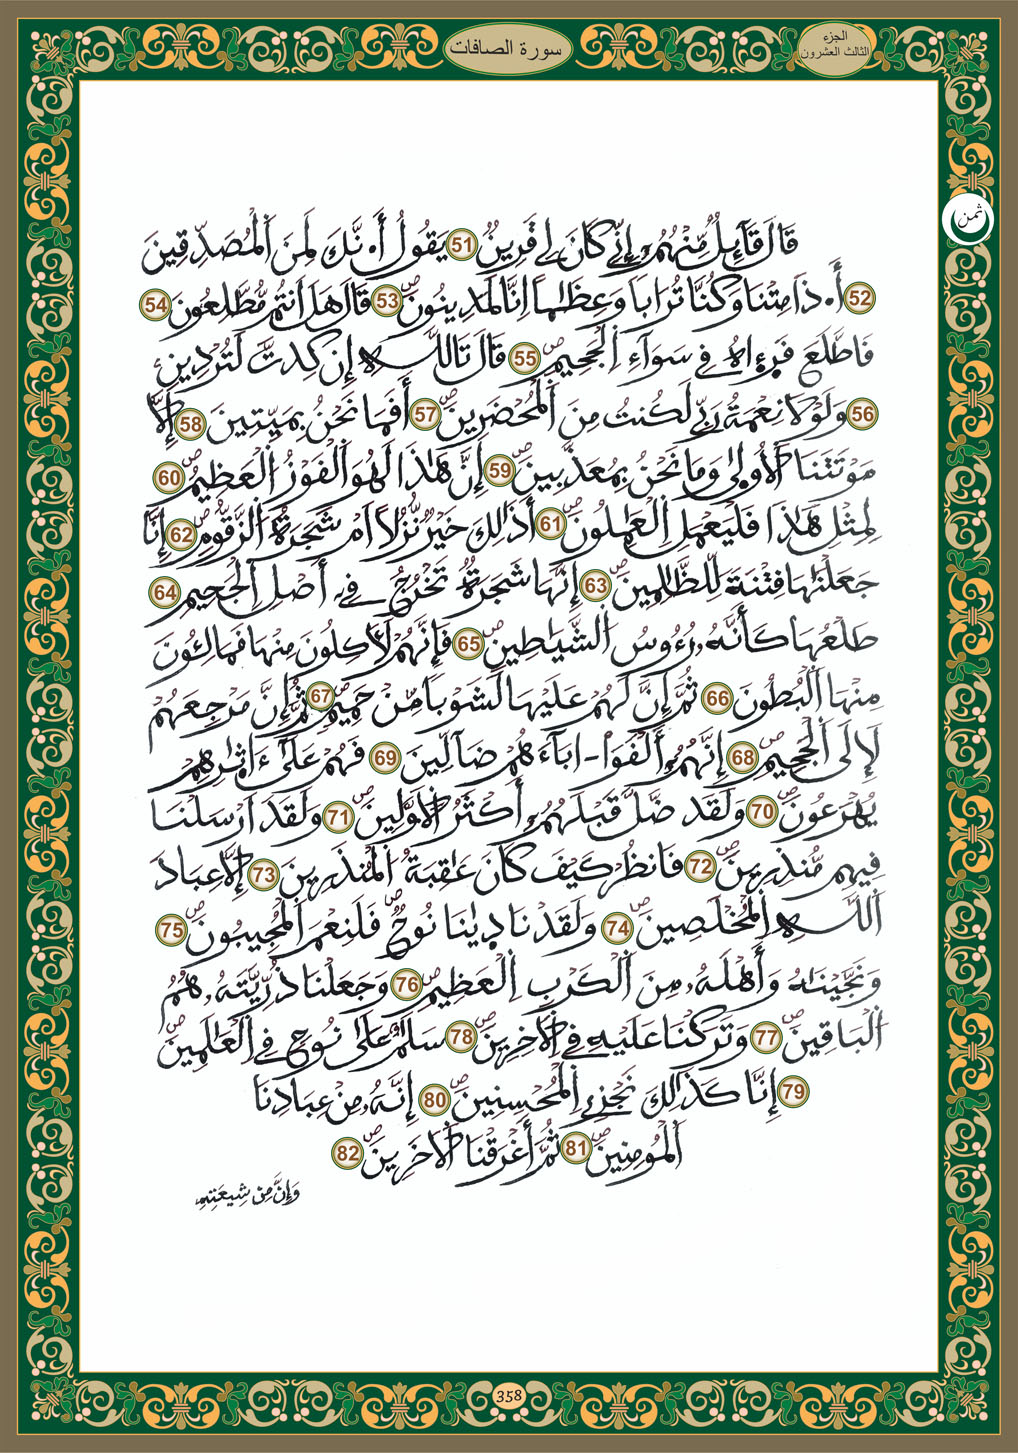 الجزء
الثالث العشرون
سورة الصافات
ثمن
قَالَ قَآئِلٌ مِّنْهُمُۥٓ إِنِّے كَانَ لِے قَرِينٌ 51 يَقُولُ أَٰ۟نَّكَ لَمِنَ اَ۬لْمُصَدِّقِينَ
52 أَٰ۟ذَا مِتْنَا وَكُنَّا تُرَاباٗ وَعِظَٰماً اِنَّا لَمَدِينُونَ 53 قَالَ هَلَ اَنتُم مُّطَّلِعُونَ 54
فَاطَّلَعَ فَرَءِاهُ فِے سَوَآءِ اِ۬لْجَحِيمِ 55 قَالَ تَاللَّهِ إِن كِدتَّ لَتُرْدِينِ
56 وَلَوْلَا نِعْمَةُ رَبِّے لَكُنتُ مِنَ اَ۬لْمُحْضَرِينَ 57 أَفَمَا نَحْنُ بِمَيِّتِينَ 58 إِلَّا
مَوْتَتَنَا اَ۬لُاولَىٰ وَمَا نَحْنُ بِمُعَذَّبِينَ 59 إِنَّ هَٰذَا لَهُوَ اَ۬لْفَوْزُ اُ۬لْعَظِيمُ 60
لِمِثْلِ هَٰذَا فَلْيَعْمَلِ اِ۬لْعَٰمِلُونَ 61 أَذَٰلِكَ خَيْرٞ نُّزُلاً اَمْ شَجَرَةُ اُ۬لزَّقُّومِ 62 إِنَّا
جَعَلْنَٰهَا فِتْنَةٗ لِّلظَّٰلِمِينَ 63 إِنَّهَا شَجَرَةٞ تَخْرُجُ فِےٓ أَصْلِ اِ۬لْجَحِيمِ 64
طَلْعُهَا كَأَنَّهُۥ رُءُوسُ اُ۬لشَّيَٰطِينِ 65 فَإِنَّهُمْ لَأٓكِلُونَ مِنْهَا فَمَالِـُٔونَ
مِنْهَا اَ۬لْبُطُونَ 66 ثُمَّ إِنَّ لَهُمْ عَلَيْهَا لَشَوْباٗ مِّنْ حَمِيمٖ 67 ثُمَّ إِنَّ مَرْجِعَهُمْ
لَإِلَى اَ۬لْجَحِيمِ 68 إِنَّهُمُۥٓ أَلْفَوَاْ ـ ابَآءَهُمْ ضَآلِّينَ 69 فَهُمْ عَلَىٰٓ ءَاثٰ۪رِهِمْ
يُهْرَعُونَ 70 وَلَقَد ضَّلَّ قَبْلَهُمُۥٓ أَكْثَرُ اُ۬لَاوَّلِينَ 71 وَلَقَدَ اَرْسَلْنَا
فِيهِم مُّنذِرِينَ 72 فَانظُرْ كَيْفَ كَانَ عَٰقِبَةُ اُ۬لْمُنذَرِينَ 73 إِلَّا عِبَادَ
اَ۬للَّهِ اِ۬لْمُخْلَصِينَ 74 وَلَقَدْ نَادٜىٰنَا نُوحٞ فَلَنِعْمَ اَ۬لْمُجِيبُونَ 75
وَنَجَّيْنَٰهُ وَأَهْلَهُۥ مِنَ اَ۬لْكَرْبِ اِ۬لْعَظِيمِ 76 وَجَعَلْنَا ذُرِّيَّتَهُۥ هُمُ
اُ۬لْبَاقِينَ 77 وَتَرَكْنَا عَلَيْهِ فِے اِ۬لَاخِرِينَ 78 سَلَٰمٌ عَلَىٰ نُوحٖ فِے اِ۬لْعَٰلَمِينَ
79 إِنَّا كَذَٰلِكَ نَجْزِے اِ۬لْمُحْسِنِينَ 80 إِنَّهُۥ مِنْ عِبَادِنَا
اَ۬لْمُومِنِينَ 81 ثُمَّ أَغْرَقْنَا اَ۬لَاخَرِينَ 82
وَإِنَّ مِن شِيعَتِهِ
358